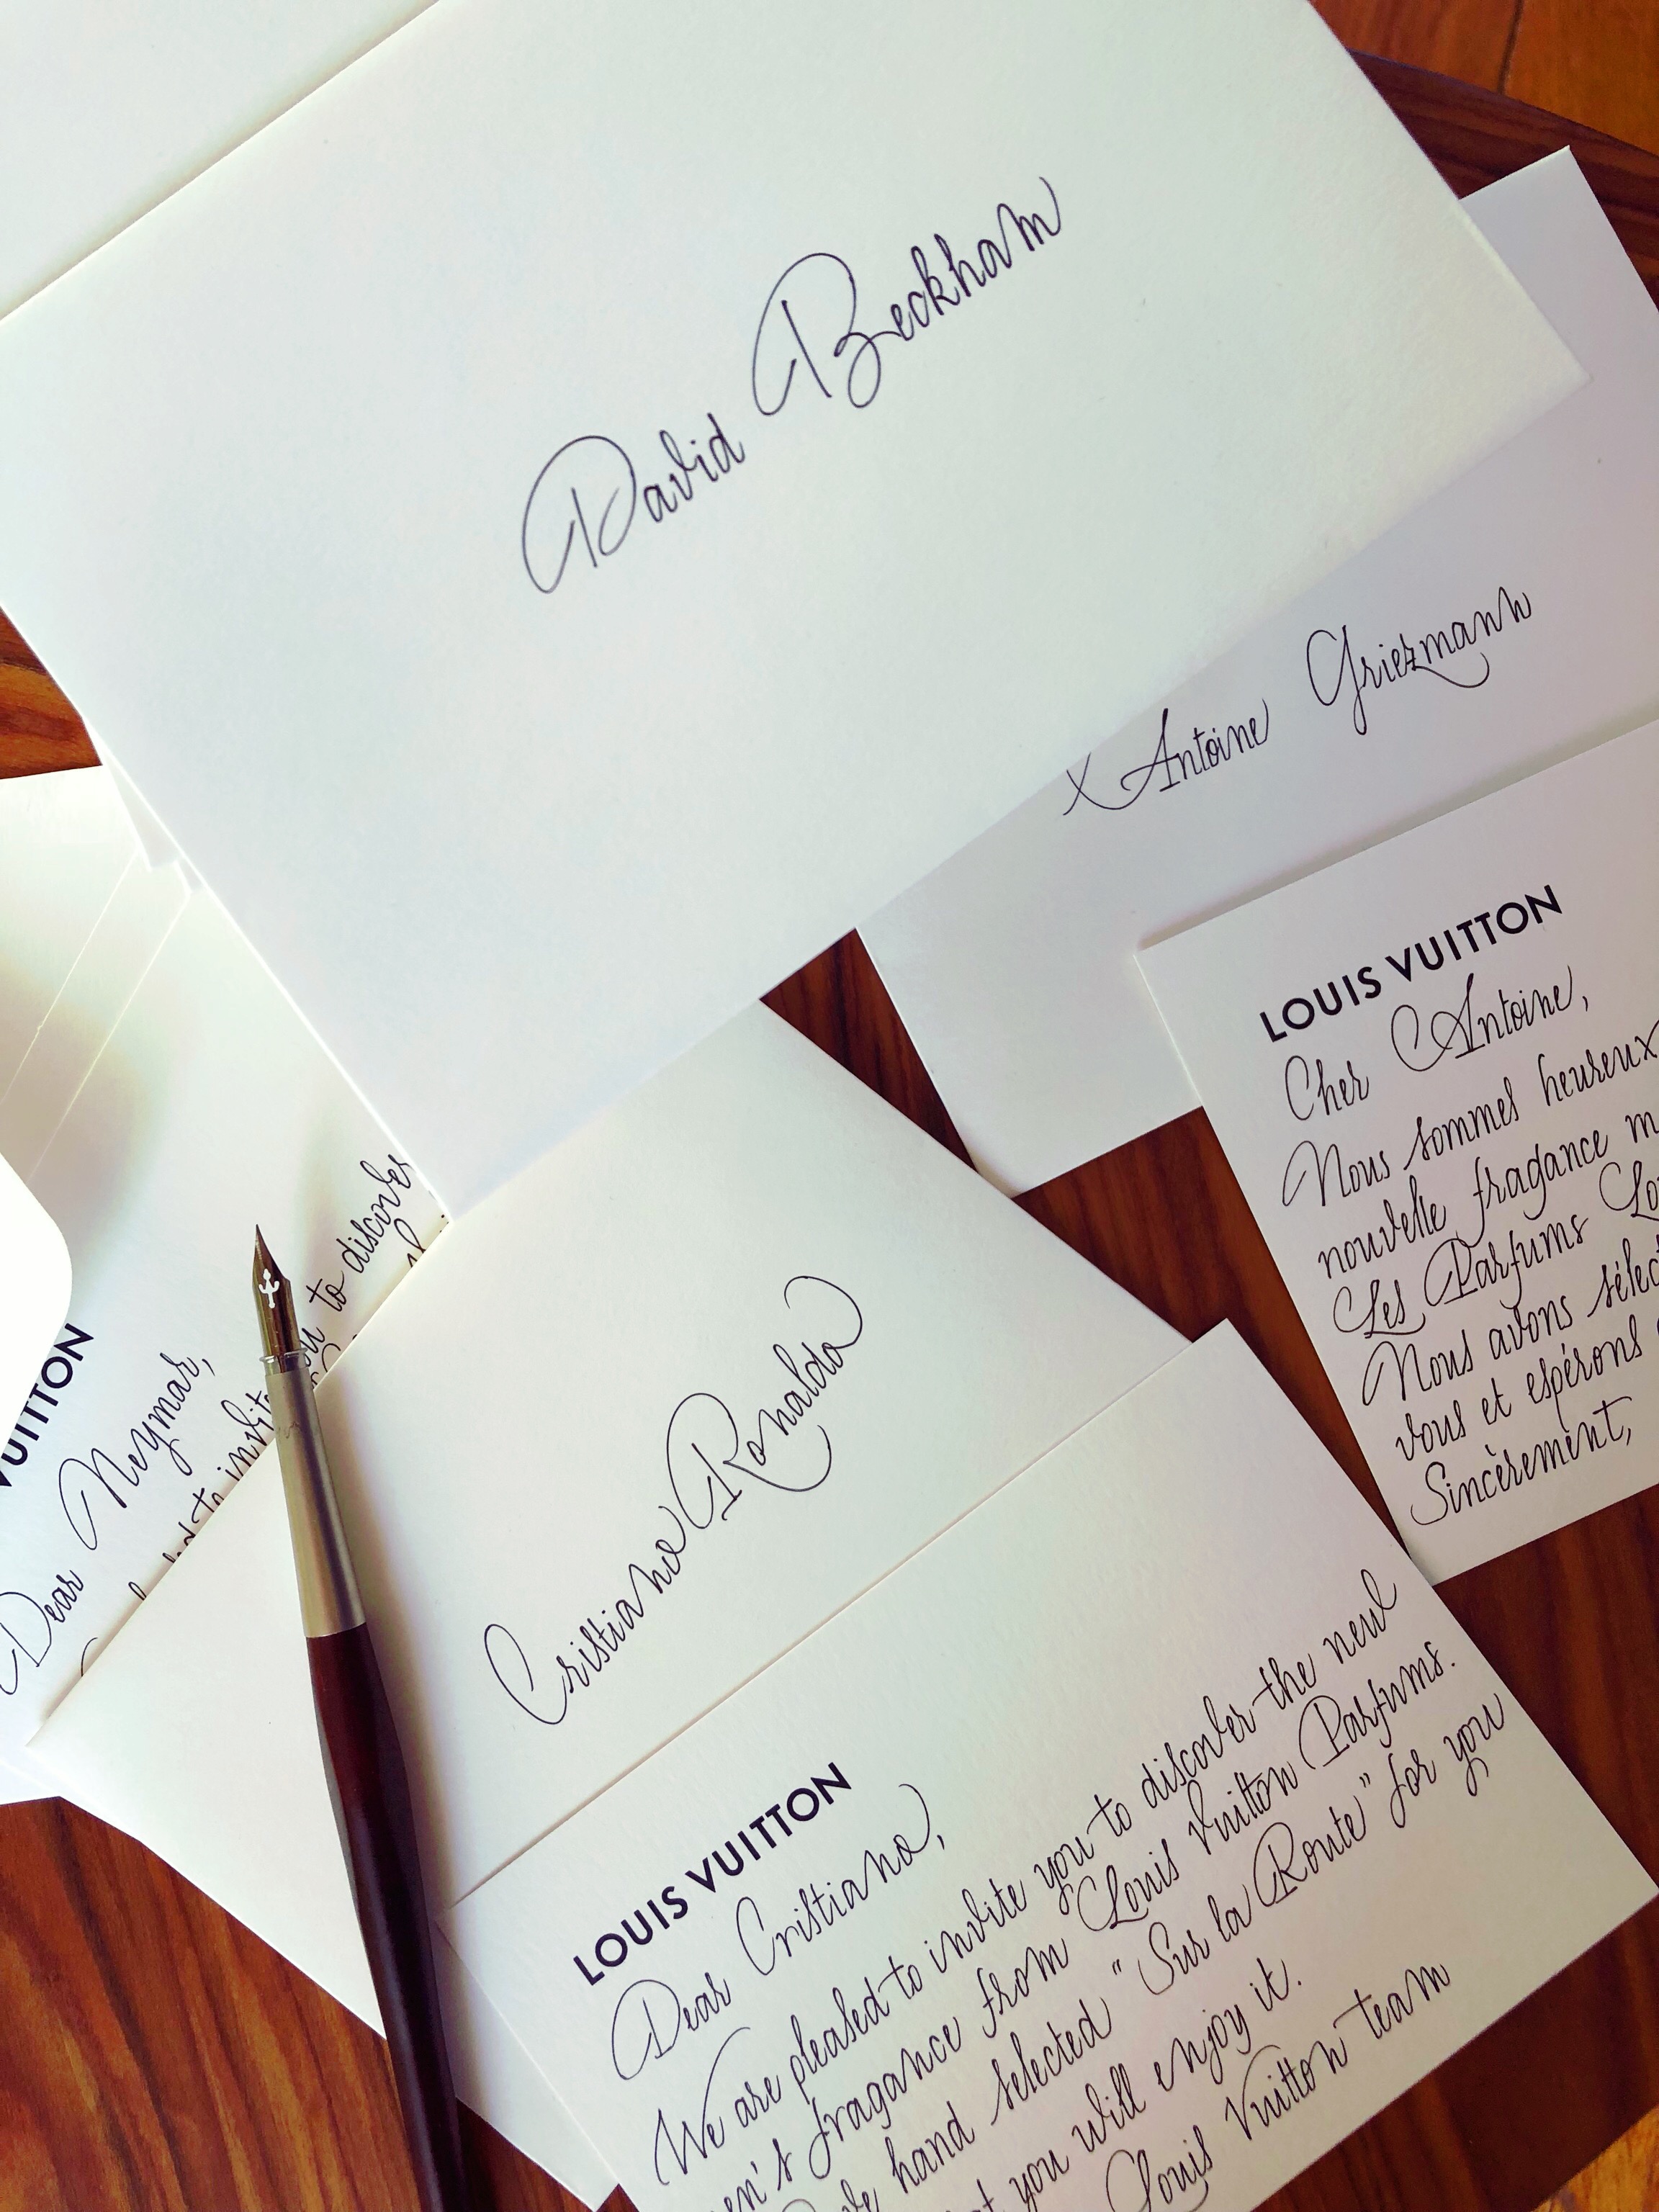 David Beckham
Antoine Griezmann
LOUIS VUITTON
Cher Antoine,
Nous sommes heureux
nouvelle fragance
Les Parfums
Nous avons
vous et espérons
Sincèrement,
VUITTON
Dear Neymar,
to discover
Cristiano Ronaldo
LOUIS VUITTON
Dear Cristiano,
We are pleased to invite you to discover the new
fragance from Louis Vuitton Parfums.
hand selected "Sur la Route" for you
you will enjoy it.
Louis Vuitton team